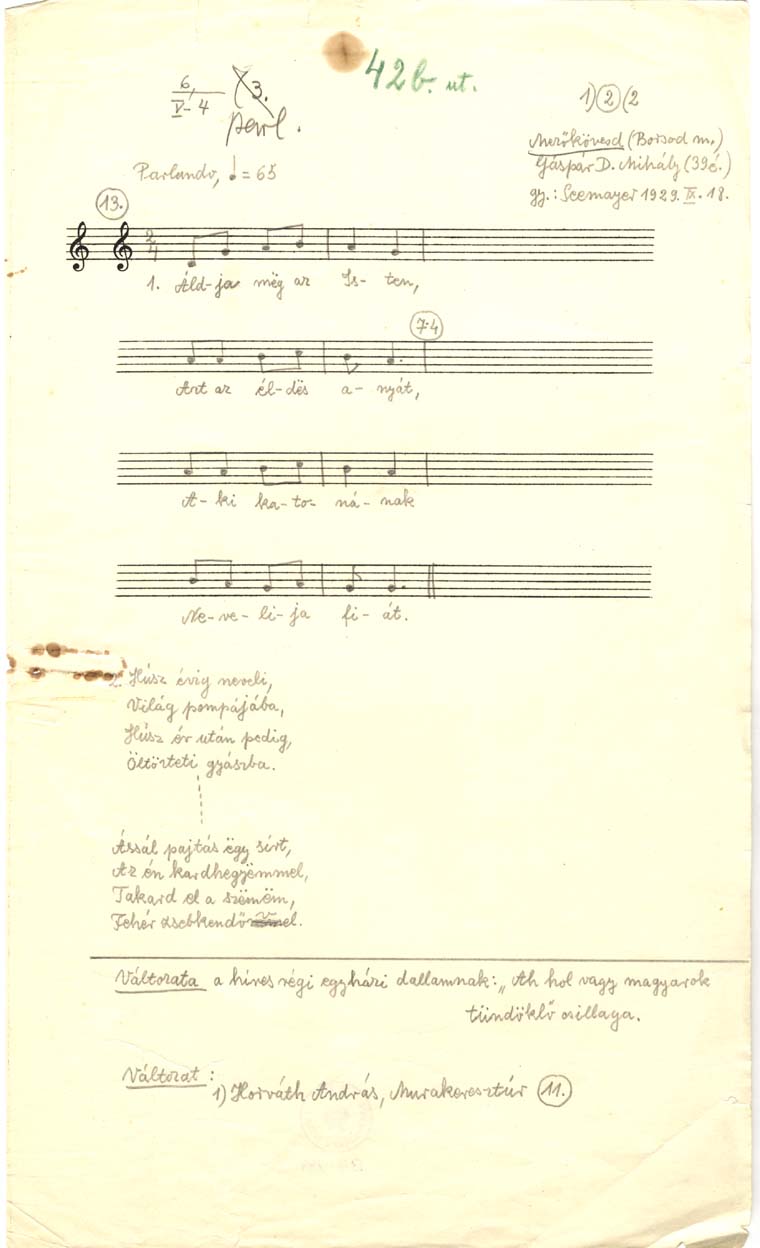 42b. ut.
6,
V-4
(3.
parl.
1) 2 (2
Mezőkövesd (Borsod m.)
Gáspár D. Mihály (39é.)
gy.: Seemayer 1929. IX. 18.
Parlando, ♩= 65
13.
2
4
1. Áld-ja mëg az Is- ten,
7:4
Azt az él-dës a- nyát,
A- ki ka-to- ná- nak
Ne-ve-li-ja fi- át.
2. Húsz évig neveli,
Világ pompájába,
Húsz év után pedig,
Öltözteti gyászba.
Ássál pajtás ëgy sírt,
Az én kardhegyëmmel,
Takard el a szëmëm,
Fehér zsebkendő el.
Változata a híres régi egyházi dallamnak: „Ah hol vagy magyarok
tündöklő csillaga.
Változat:
1) Horváth András, Murakeresztúr 11.